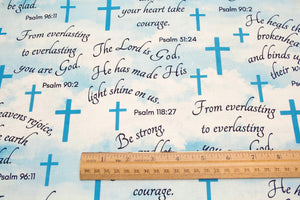 be glad.
Psalm 96:11
your heart take
courage.
Psalm 90:2
He heals th
brokenhea
and binds
their w
From everlasting
to everlasting
you are God.
Psalm 90:2
Psalm 51:24
The Lord is God,
He has made His
light shine on us.
Psalm 118:27
From everlasting
to everlasting
you are God.
avens rejoice,
e earth
d.
Psalm 96:11
Be strong,
courage.